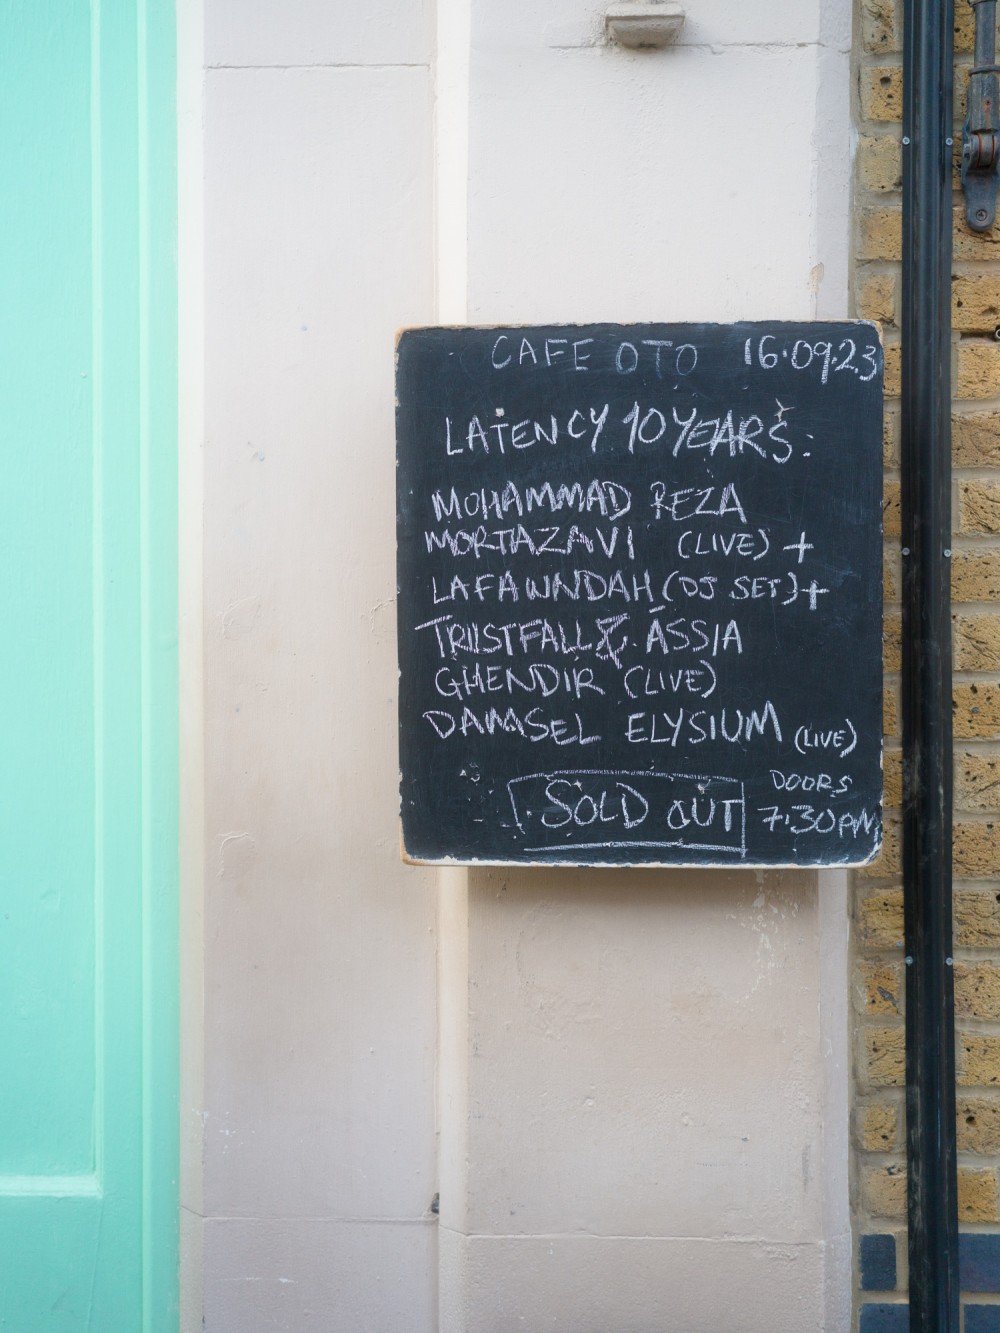 CAFE OTO 16.09.23
LATENCY 10 YEARS:
MOHAMMAD REZA
MORTAZAVI (LIVE) +
LAFAWNDAH (DJ SET) +
TRUSTFALL & ASSIA
GHENDIR (LIVE)
DAMSEL ELYSIUM (LIVE)
SOLD OUT
DOORS
7.30PM